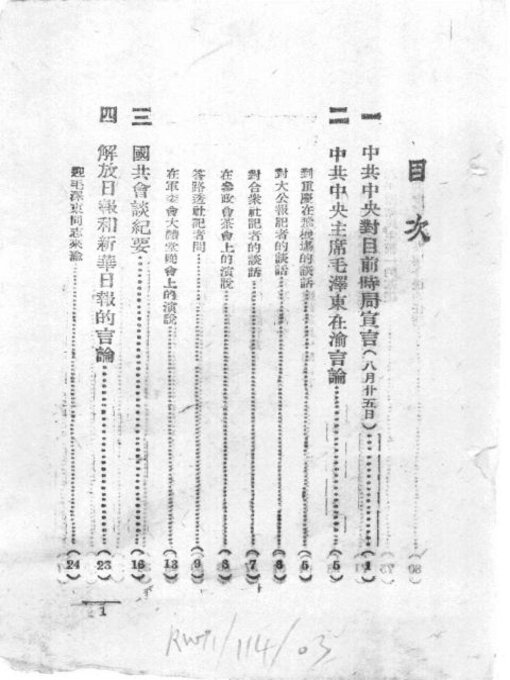 目次
一 中共中央對目前時局宣言(八月廿五日)……(1)
二 中共中央主席毛澤東在渝言論……(5)
到重慶在飛機場的談話……(5)
對大公報記者的談話……(6)
對合衆社記者的談話……(7)
在參政會茶會上的演說……(8)
答路透社記者問……(9)
在軍委會大禮堂晚會上的演說……(13)
三 國共會談紀要……(16)
四 解放日報和新華日報的言論……(23)
毛澤東同志來渝……(24)
1
RW71/114/03